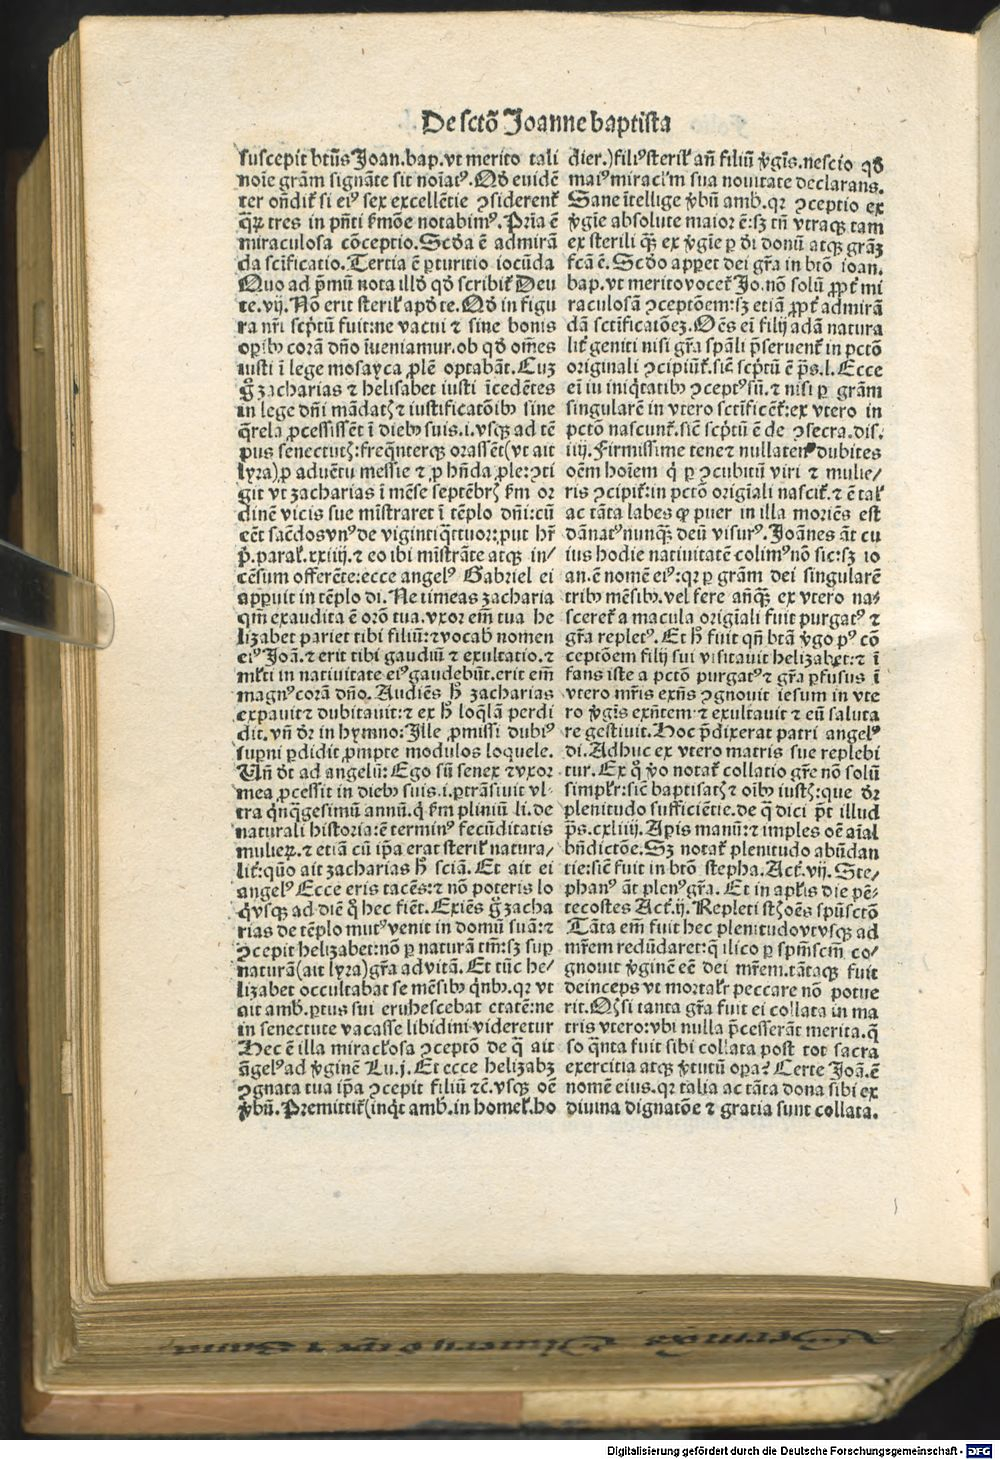 De sctō Joanne baptista
suscepit btūs Joan.bap.vt merito tali
noīe grām signāte sit noīatꝰ. Qd euidē
ter oñdit᷑ si eiꝰ sex excellētie ꝯsiderent᷑
q̄ꝝ tres in pñti ẜmōe notabimꝰ. Prīa ē
miraculosa cōceptio. Scđa ē admirā
da scīficatio. Tertia ē ꝑturitio iocūda
Quo ad p̄mū nota illđ qđ scribit᷑ Deu
te.vij. Nō erit steril᷑ apđ te. Qđ in figu
ra nr̄i scp̄tū fuit:ne vacui ⁊ sine bonis
oꝑibꝫ corā dño īueniamur.ob qđ om̄es
iusti ī lege mosayca ꝓlē optabāt. Cuꝫ
ḡ zacharias ⁊ helisabet iusti īcedētes
in lege dñi mādatꝭ ⁊ iustificatōibꝫ sine
q̄rela ꝓcessissēt ī diebꝫ suis.i.vsqꝫ ad tē
pus senectutꝭ:freq̄nterqꝫ orassēt(vt ait
lyra)ꝑ aduētu messie ⁊ ꝑ hñda ꝓle:ꝯti
git vt zacharias ī mēse septēbrꝭ ẜm or
dinē vicis sue mīstraret ī tēplo dñi:cū
eēt sacđos vnꝰ de vigintiq̄ttuor:put hr̄
p̄.paral᷑.xxiiij.⁊ eo ibi mīstrāte atqꝫ in/
cēsum offerēte:ecce angelꝰ Gabriel ei
apꝑuit in tēplo di. Ne timeas zacharia
qm̄ exaudita ē orō tua.vxor em̄ tua he
lizabet pariet tibi filiū:⁊ vocab̄ nomen
eiꝰ Joā.⁊ erit tibi gaudiū ⁊ exultatio.⁊
ml᷑ti in natiuitate eiꝰ gaudebūt.erit em̄
magnꝰ corā dño. Audiēs h̄ zacharias
expauit ⁊ dubitauit:⁊ ex h̄ loq̄lā perdi
dit. vñ dr̄ in hymno:Ille ꝓmissi dubiꝰ
suꝑni ꝑdidit ꝓmpte modulos loquele.
Vñ dt̄ ad angelū: Ego sū senex ⁊ vxor
mea ꝓcessit in diebꝫ suis.i.ꝑtrāsiuit vl-
tra q̄nq̄gesimū annū.q̄ ẜm pliniū li.de
naturali historia:ē terminꝰ fecūditatis
mulieꝝ.⁊ etiā cū ip̄a erat steril᷑ natura/
lit᷑:quō ait zacharias h̄ sciā. Et ait ei
angelꝰ Ecce eris tacēs:⁊ nō poteris lo
q̄ vsqꝫ ad diē q̄ hec fiēt. Exiēs ḡ zacha
rias de tēplo mutꝰ venit in domū suā:⁊
ꝯcepit helizabet:nō ꝑ naturā tm̄:sꝫ suꝑ
naturā(ait lyra)gr̄a ad vitā. Et tūc he/
lizabet occultabat se mēsibꝫ q̄nbꝫ.qꝛ vt
ait amb̄.ꝑtus sui erubescebat etatē:ne
in senectute vacasse libidini videretur
Hec ē illa miracl᷑osa ꝯceptō de q̄ ait
āgelꝰ ad v̄ginē Lu.j. Et ecce helizabꝫ
ꝯgnata tua ip̄a ꝯcepit filiū ⁊c̄. vsqꝫ oē
v̄bū. Premittit᷑(inq̄t amb̄.in homel᷑.ho
dier.)filiꝰ steril᷑ añ filiū v̄gīs.nescio qđ
maiꝰ miracl᷑m sua nouitate declarans.
Sane ītellige v̄bū amb.qꝛ ꝯceptio ex
v̄gīe absolute maior ē:sꝫ tñ vtraqꝫ tam
ex sterili q̄ꝫ ex v̄gīe ꝑ di donū atqꝫ grāꝫ
fcā ē. Scđo apꝑet dei gr̄a in btō ioan.
bap.vt merito vocet᷑ Jo.nō solū ꝓpt᷑ mi
raculosā ꝯceptōem:sꝫ etiā ꝓpt᷑ admirā
dā sctificatōeꝫ. Oēs ei filij adā natura
lit᷑ geniti nisi gr̄a sp̄ali p̄seruent᷑ in pctō
originali ꝯcipiūt᷑.siē scp̄tū ē ps̄.l. Ecce
ei in iniq̄tatibꝫ ꝯceptꝰ sū.⁊ nisi ꝑ grām
singularē in vtero sctificēt᷑:ex vtero in
pctō nascunt᷑.siē scp̄tū ē de ꝯsecra.dis.
iiij. Firmissime tene ⁊ nullatenꝰ dubites
oēm hoīem q̄ ꝑ ꝯcubitū viri ⁊ mulie/
ris ꝯcipit᷑:in pctō origīali nascit᷑.⁊ ē tal᷑
ac tāta labes ꝙ puer in illa moriēs est
dānatꝰ nunq̄ꝫ deū visurꝰ. Joānes āt cu
ius hodie natiuitatē colimꝰ nō sic:sꝫ io
an.ē nomē eiꝰ:qꝛ ꝑ grām dei singularē
tribꝫ mēsibꝫ.vel fere añq̄ꝫ ex vtero na/
sceret᷑ a macula origīali fuit purgatꝰ ⁊
gr̄a repletꝰ. Et h̄ fuit qñ btā v̄go pꝰ cō
ceptōem filij sui visitauit helizabet:⁊ ī
fans iste a pctō purgatꝰ ⁊ gr̄a ꝑfusus ī
vtero mr̄is exñs ꝯgnouit iesum in vte
ro v̄gīs exñtem ⁊ exultauit ⁊ eū saluta
re gestiuit. Hoc p̄dixerat patri angelꝰ
di. Adhuc ex vtero matris sue replebi
tur. Ex q̄ v̄o notat᷑ collatio gr̄e nō solū
simpl᷑r:siē baptisatꝭ ⁊ oībꝫ iustꝭ:que dr̄
plenitudo sufficiētie.de q̄ dici p̄t illud
ps̄.cxliiij. Aꝑis manū:⁊ imples oē aīal
bñdictōe. Sꝫ notat᷑ plenitudo abūdan
tie:siē fuit in btō stepha. Act᷑.vij. Ste/
phanꝰ āt plenꝰ gr̄a. Et in apl᷑is die pē-
tecostes Act᷑.ij. Repleti st̄ oēs spūsctō
Tāta em̄ fuit hec plenitudo vt vsqꝫ ad
mr̄em redūdaret:q̄ ilico ꝑ spm̄scm̄ co/
gnouit v̄ginē eē dei mr̄em.tātaqꝫ fuit
deinceps vt mortal᷑r peccare nō potue
rit. Qꝫ si tanta gr̄a fuit ei collata in ma
tris vtero:vbi nulla p̄cesserāt merita.q̄
so q̄nta fuit sibi collata post tot sacra
exercitia atqꝫ v̄tutū oꝑa? Certe Joā.ē
nomē eius.qꝛ talia ac tāta dona sibi ex
diuina dignatōe ⁊ gratia sunt collata.
Digitalisierung gefördert durch die Deutsche Forschungsgemeinschaft - DFG